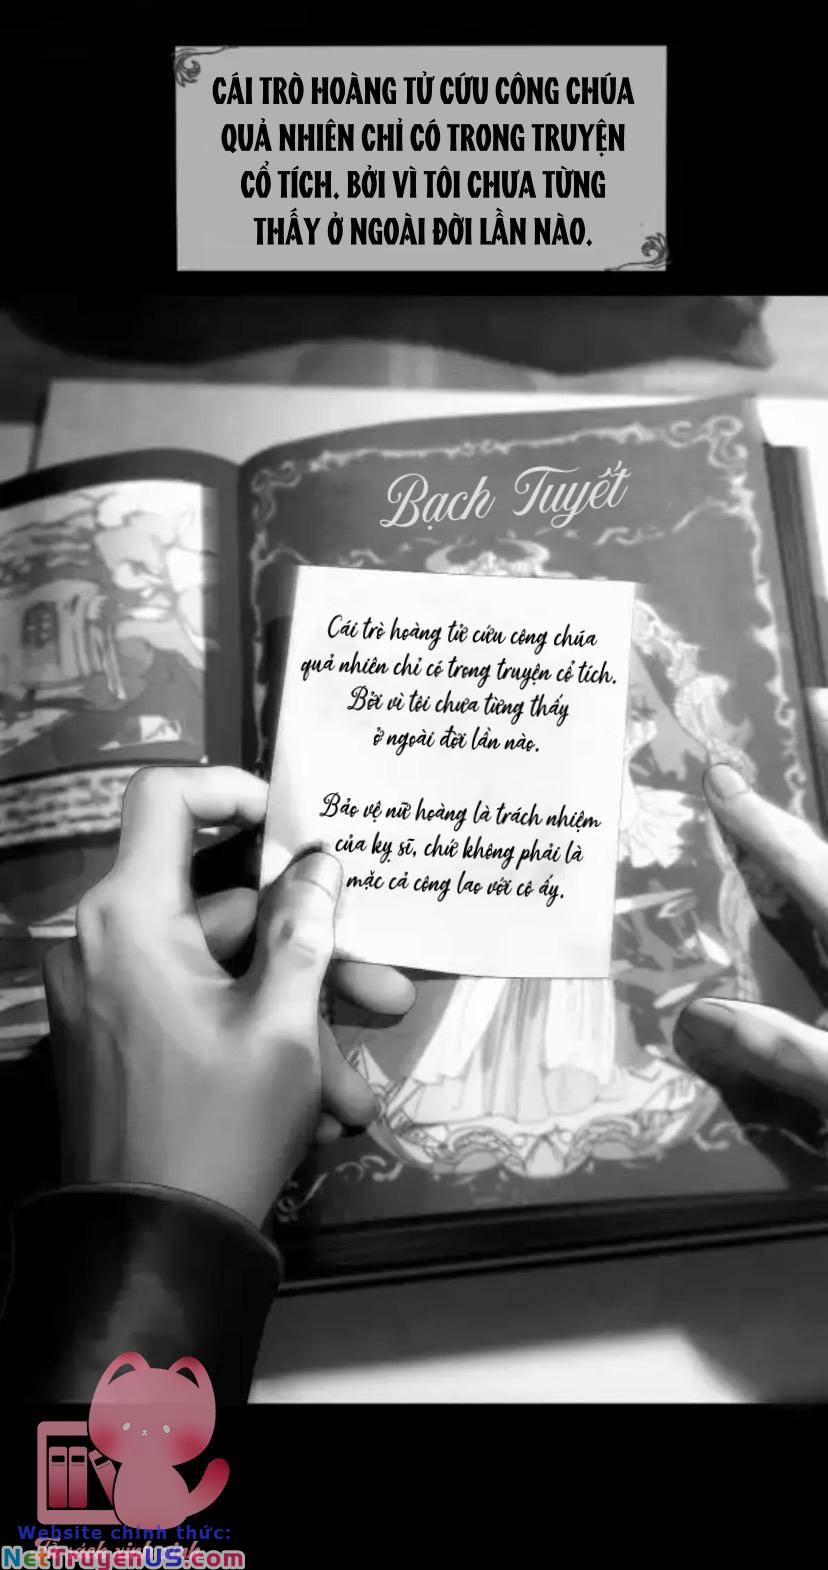 CÁI TRÒ HOÀNG TỬ CỨU CÔNG CHÚA
QUẢ NHIÊN CHỈ CÓ TRONG TRUYỆN
CỔ TÍCH. BỞI VÌ TÔI CHƯA TỪNG
THẤY Ở NGOÀI ĐỜI LẦN NÀO.
Bạch Tuyết
Cái trò hoàng tử cứu công chúa
quả nhiên chỉ có trong truyện cổ tích.
Bởi vì tôi chưa từng thấy
ở ngoài đời lần nào.
Bảo vệ nữ hoàng là trách nhiệm
của kỵ sĩ, chứ không phải là
mặc cả công lao với cô ấy.
Website chính thức:
NetTruyenUS.com